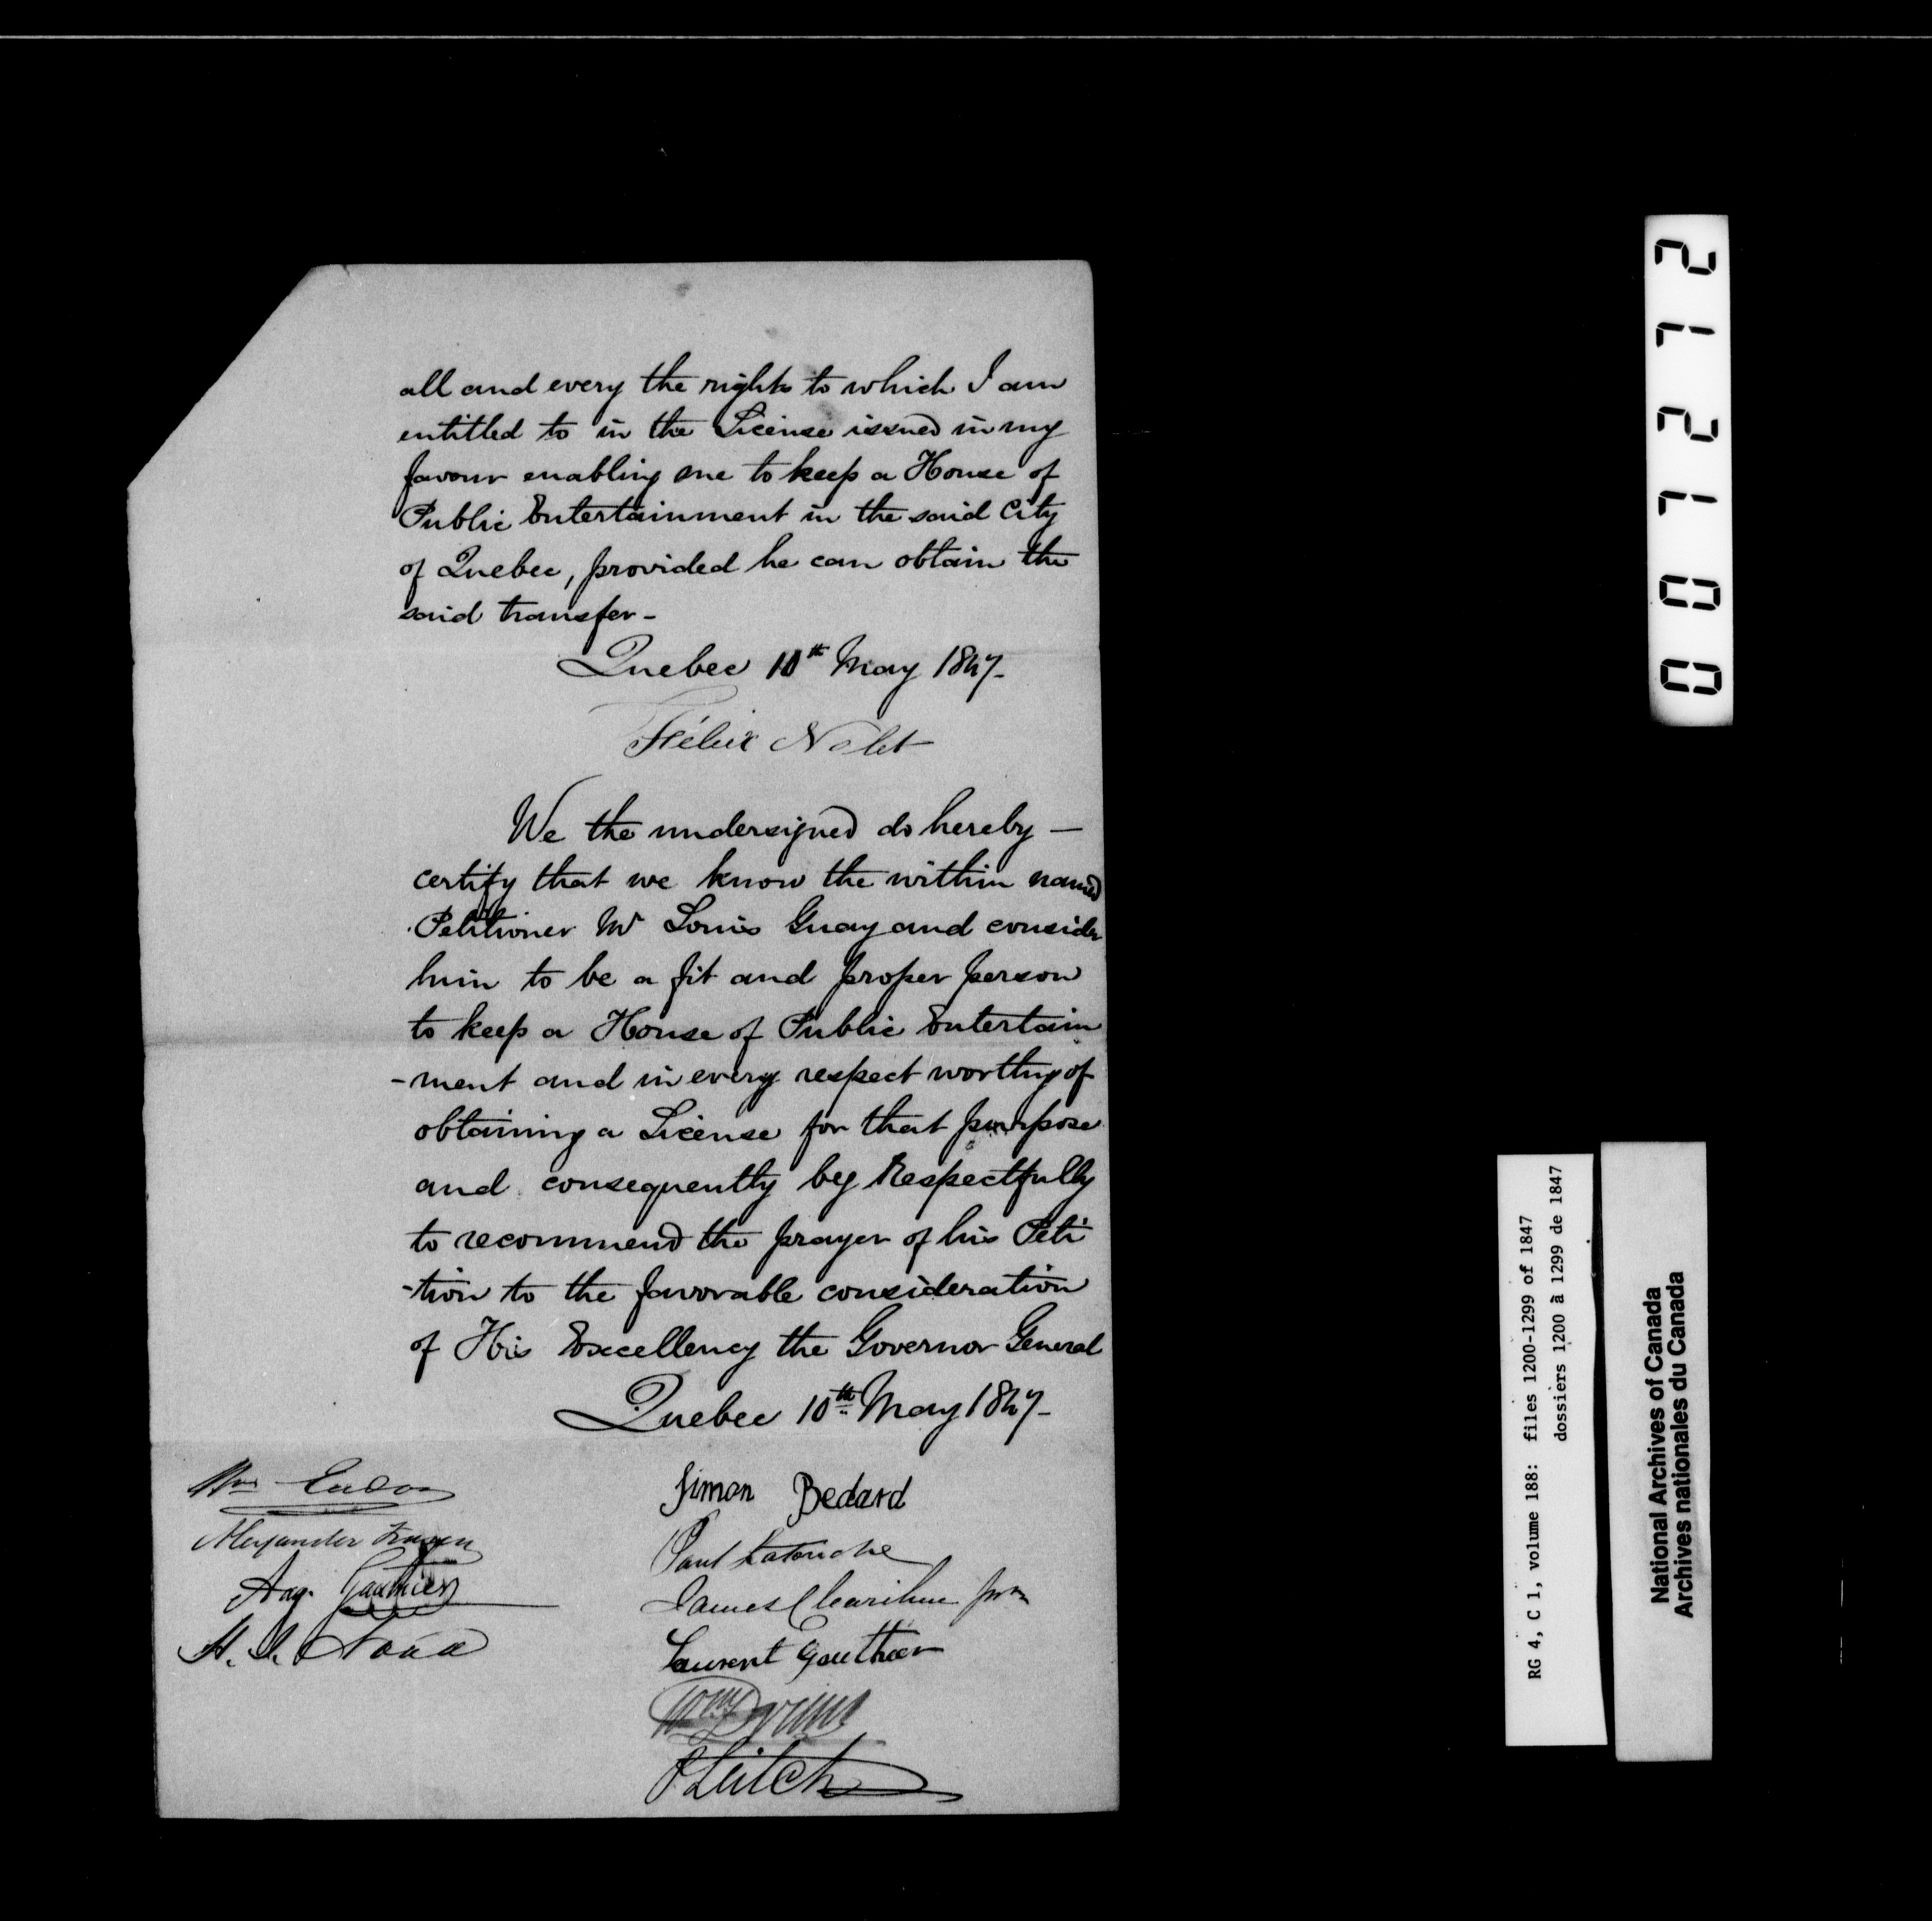 all and every the rights to which I am
entitled to in the License issued in my
favour enabling me to keep a House of
Public Entertainment in the said City
of Quebec, provided he can obtain the
said transfer -
Quebec 10th May 1847 -
Félix Nolet
We the undersigned do hereby —
certify that we know the within named
Petitioner Mr Louis Guay and consider
him to be a fit and proper person
to keep a House of Public Entertain
-ment and in every respect worthy of
obtaining a License for that purpose
and consequently beg Respectfully
to recommend the prayer of his Peti
-tion to the favorable consideration
of His Excellency the Governor General
Quebec 10th May 1847 -
Wm
Alexander
Aug. Gauthier
H. S.
Simon Bedard
Paul Latouche
James Clearihue
Laurent Gauthier
Wm
P Leitch
001212
RG 4, C 1, volume 188: files 1200-1299 of 1847
dossiers 1200 à 1299 de 1847
National Archives of Canada
Archives nationales du Canada